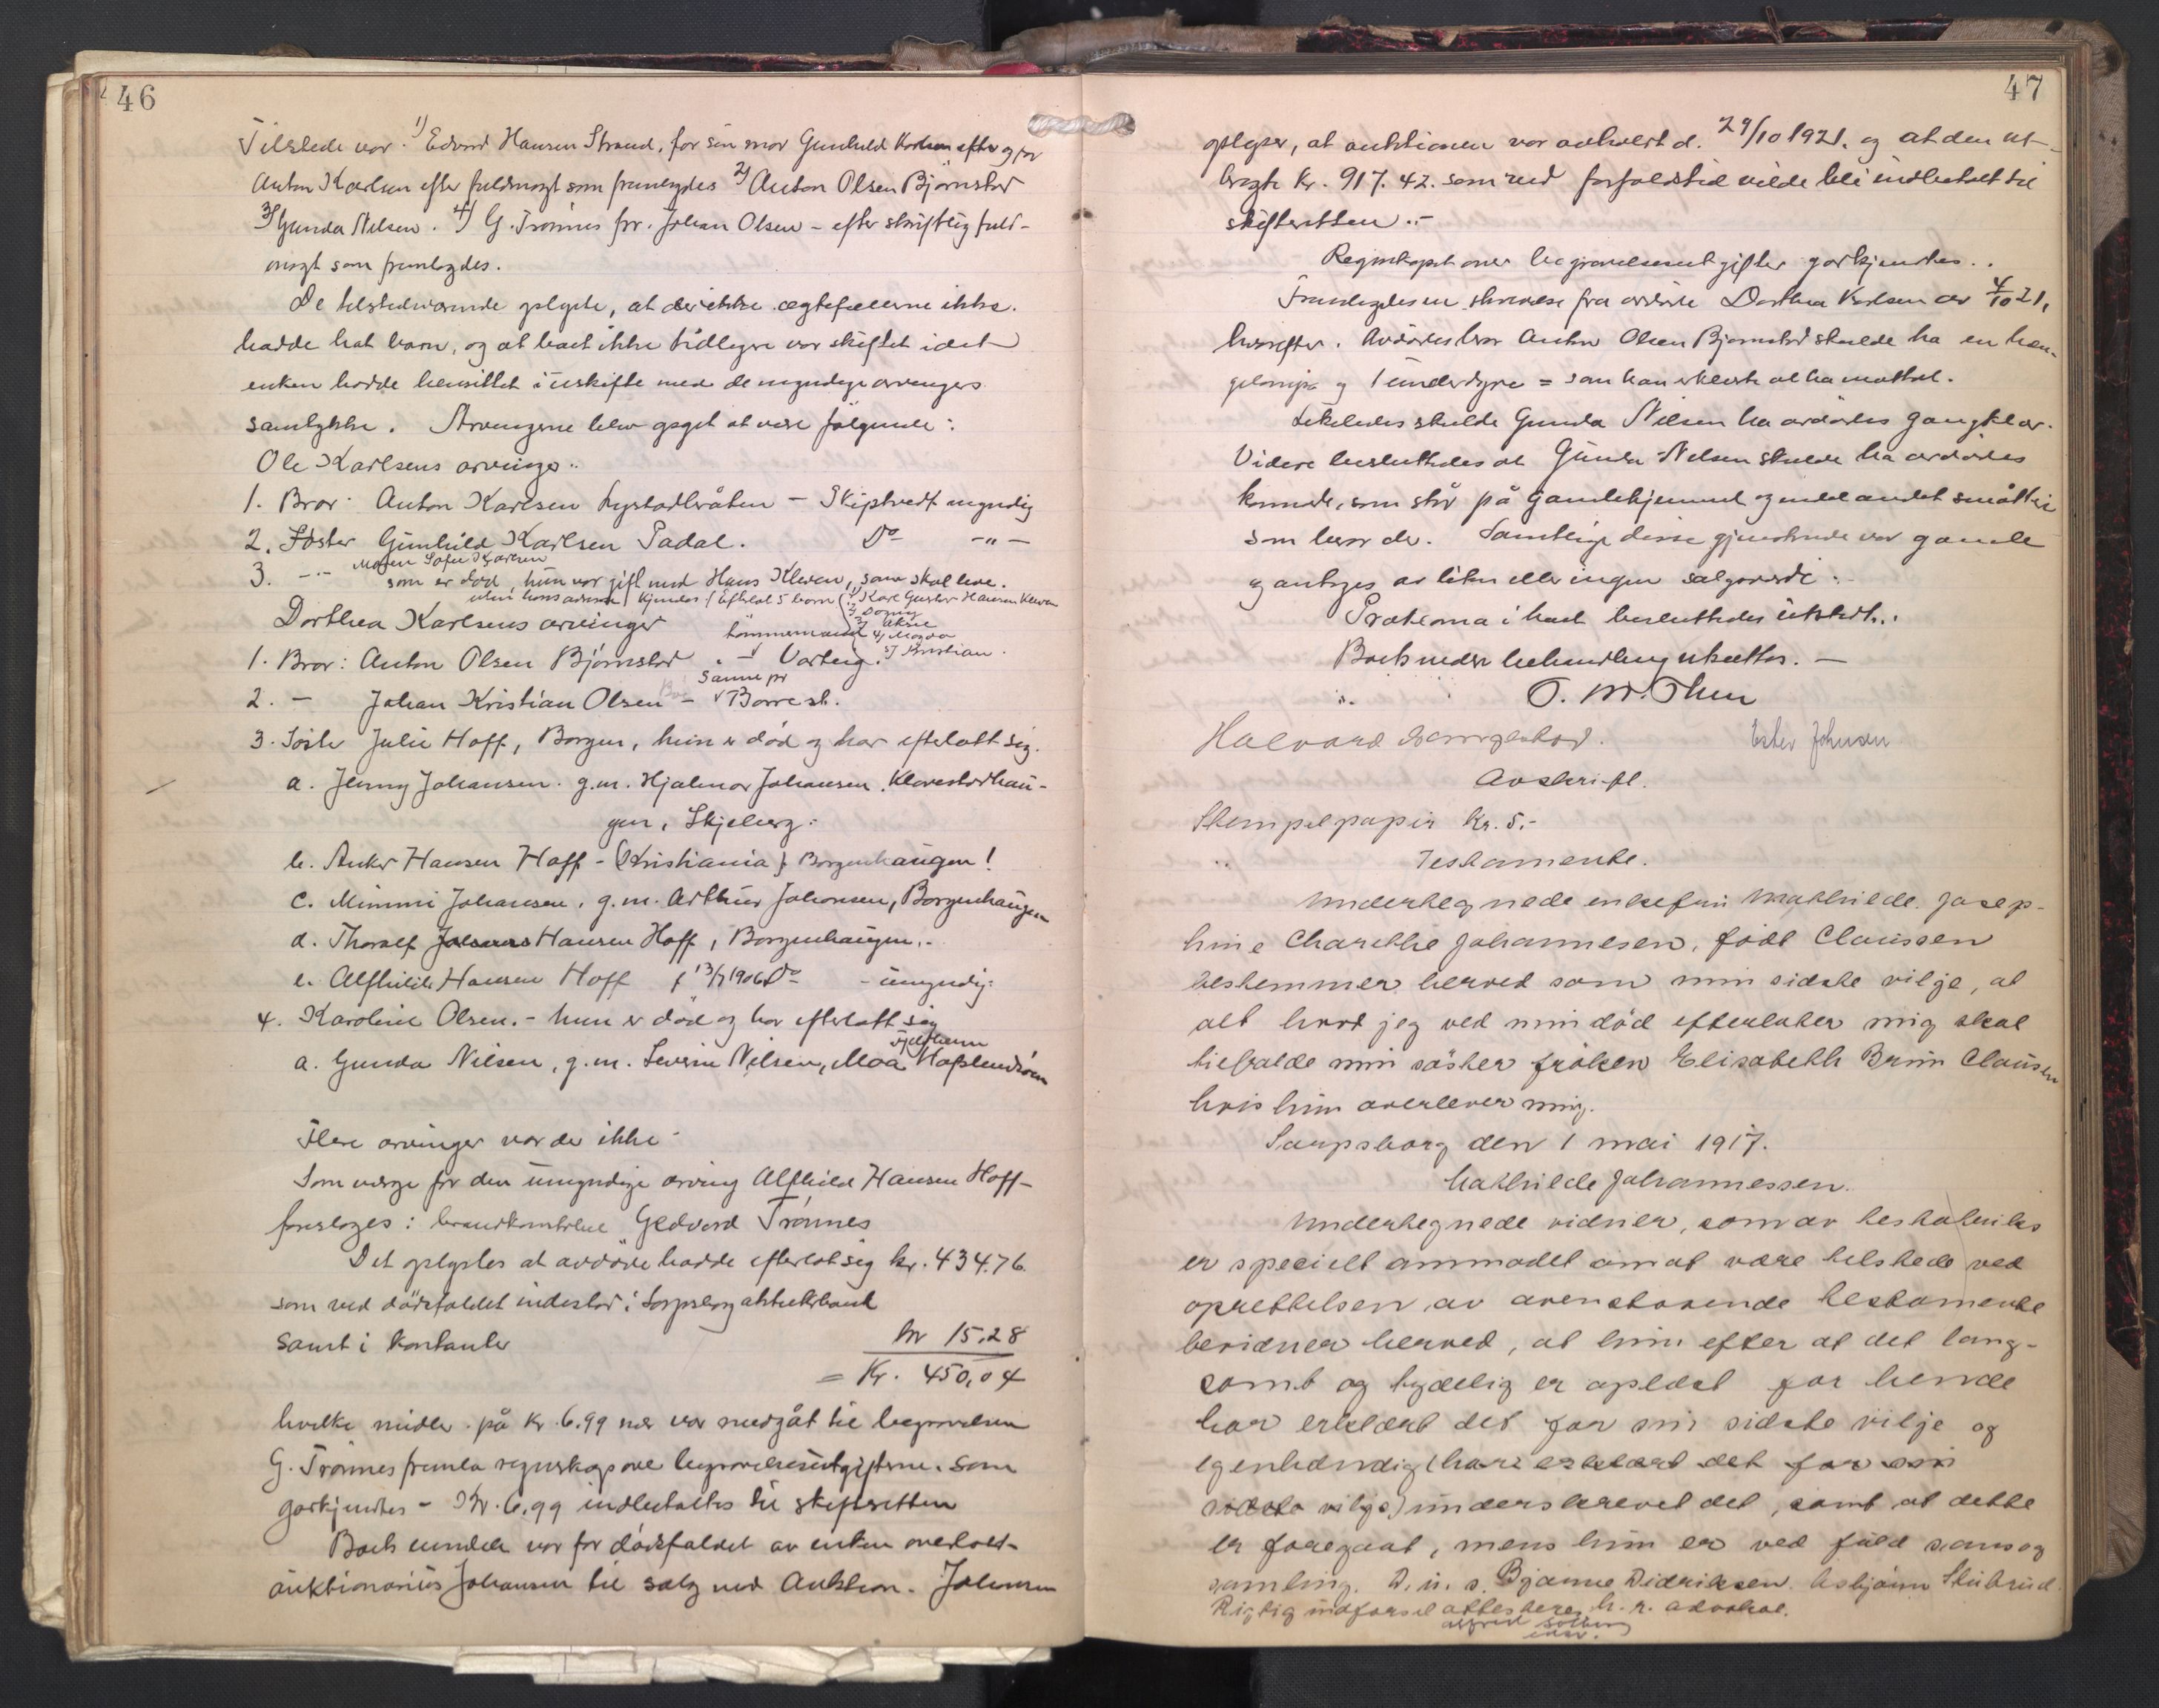 46
Tilstede var: 1) Edvard Hansen Strand, for sin mor Gunhild Karlsen efter og for
Anton Karlsen efter fuldmagt som fremlagdes 2) Anton Olsen Bjørnstad
3) Gunda Nilsen. 4) G. Trønnes for Johan Olsen - efter skriftlig fuld-
magt som fremlagdes.
De tilstedeværende oplyste, at ægtefællerne ikke
hadde hat barn, og at boet ikke tidligere var skiftet idet
enken hadde hensittet i uskifte med de myndige arvingers
samtykke. Arvingerne blev opgit at være følgende:
Ole Karlsens arvinger:
1. Bror: Anton Karlsen - Skiptvedt myndig
2. Søster Gunhild Karlsen Tadal. Do -"-
3. -"- Maren Sofie Karlsen
som er død, hun var gift med Hans Kleven, som skal leve.
uten hans adresse kjendes. Efterlot 5 barn (1) Karl Gustav Hansen Kleven
2) Dagny
3)
4) Magda
5) Kristian.
Dorthea Karlsens arvinger
1. Bror: Anton Olsen Bjørnstad tømmermand - Varteig.
2. - Johan Kristian Olsen - Sanne pr Borre st.
3. Søster Julie Hoff, Borgen, hun er død og har efterlatt sig.
a. Jenny Johansen. g.m. Hjalmar Johansen. Klavestadhau-
gen, Skjeberg.
b. Anker Hansen Hoff - (Kristiania) Borgenhaugen!
c. Mimmi Johansen, g.m. Arthur Johansen, Borgenhaugen
d. Thoralf Hansen Hoff, Borgenhaugen.-
e. Alfhild Hansen Hoff f 13/7 1906 Do - umyndig:
4. Karoline Olsen. - hun er død og har efterlatt sig
a. Gunda Nilsen, g.m. Severin Nilsen, Moa Hafslundsøen
Flere arvinger var der ikke -
Som verge for den umyndige arving Alfhild Hansen Hoff -
foresloges: Gedvard Trønnes
Det oplystes at avdøde hadde efterlat sig kr. 434.76.
som ved dødsfaldet indestod i Sarpsborg aktiebank
samt i kontanter kr 15,28
= Kr. 450,04
hvilke midler på kr. 6.99 nær var medgåt til begravelsen
G. Trønnes fremla regnskap over begravelsesutgifterne. som
godkjendtes - Kr. 6,99 indbetaltes til skifteretten
Boets eiendele var før dødsfaldet av enken overlatt
auktionarius Johansen til salg ved Auktion. Johansen
47
oplyser, at auktionen var avholdt d. 29/10 1921. og at den ut-
bragte Kr. 917.42. som ved forfaldstid vilde bli indbetalt til
skifteretten.-
Regnskapet over begravelsesutgifter godkjendtes.
Fremlagdes en skrivelse fra avdøde Dorthea Karlsen av 4/10 21,
hvorefter avdødes bror Anton Olsen Bjørnstad skulde ha en hæn-
gelampe og 1 underdyne = som han erklærte at ha mottat.
Likeledes skulde Gunda Nilsen ha avdødes gangklær.
Videre besluttedes at Gunda Nilsen skulde ha avdødes
kommode, som står på gamlehjemmet og endel andet småtteri
som beror der. Samtlige disse gjenstande var gamle
og antages av liten eller ingen salgsværdi.
Proklama i boet besluttedes utstedt.
Boets videre behandling utsattes. -
O. M. Thun
Halvard
Ester Johnsen
Avskrift.
Stempelpapir kr. 5.-
Testamente.
Undertegnede enkefru Mathilde Josep-
hine Charlotte Johannesen, født Claussen
bestemmer herved som min sidste vilje, at
alt hvad jeg ved min død efterlater mig skal
tilfalde min søster frøken Elisabeth Brun Claussen
hvis hun overlever mig.
Sarpsborg den 1 mai 1917.
Mathilde Johannessen.
Undertegnede vidner, som av testatriks
er specielt anmodet om at være tilstede ved
oprettelsen av ovenstaaende testamente
bevidner herved, at hun efter at det lang-
somt og tydelig er oplæst for hende
har erklært det for sin sidste vilje og
egenhændig (har erklært det for sin
sidste vilje) underskrevet det, samt at dette
er foregaat, mens hun er ved fuld sans og
samling. D.u.s. Bjarne Didriksen. Asbjørn Stubrud.
Rigtig indførsel attesteres h. r. advokat.